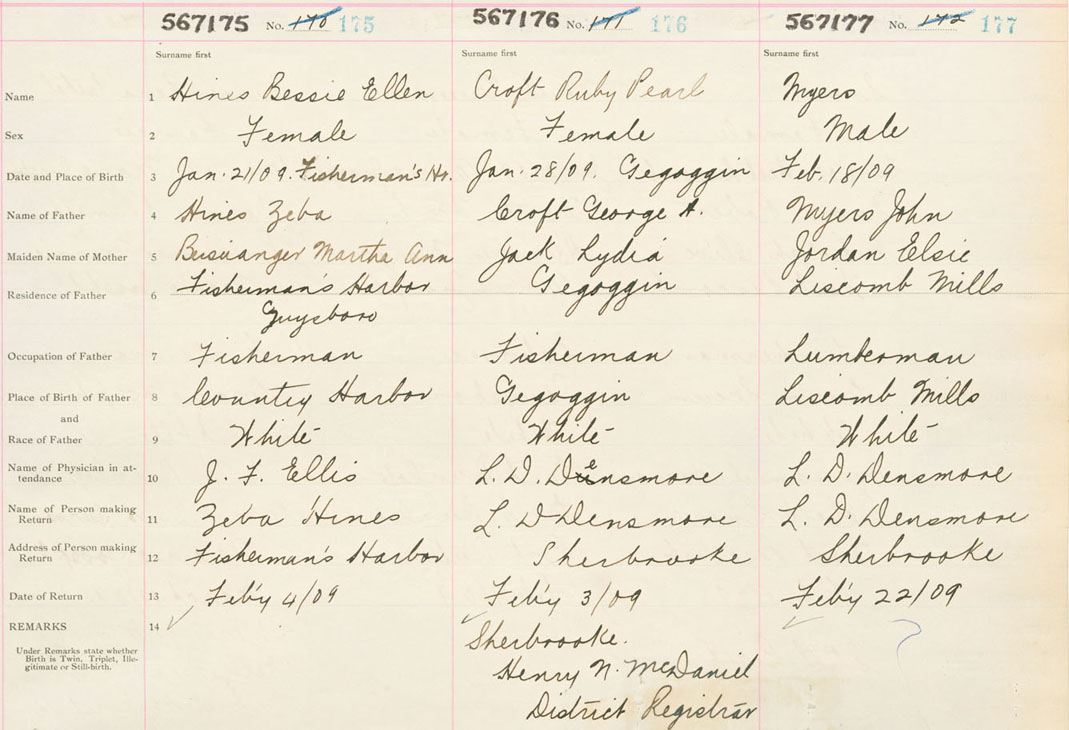 567175 No. 170 175 567176 No. 171 176 567177 No. 172 177
Surname first Surname first Surname first
Name 1 Hines Bessie Ellen Croft Ruby Pearl Myers
Sex 2 Female Female Male
Date and Place of Birth 3 Jan. 21/09. Fisherman's Ho. Jan. 28/09. Gegoggin Feb. 18/09
Name of Father 4 Hines Zeba Croft George A. Myers John
Maiden Name of Mother 5 Martha Ann Jack Lydia Jordan Elsie
Residence of Father 6 Fisherman's Harbor Gegoggin Liscomb Mills
Guysboro
Occupation of Father 7 Fisherman Fisherman Lumberman
Place of Birth of Father 8 Country Harbor Gegoggin Liscomb Mills
and
Race of Father 9 White White White
Name of Physician in at-
tendance 10 J. F. Ellis L. D. Densmore L. D. Densmore
Name of Person making
Return 11 Zeba Hines L. D Densmore L. D. Densmore
Address of Person making
Return 12 Fisherman's Harbor Sherbrooke Sherbrooke
Date of Return 13 Feb'y 4/09 Feb'y 3/09 Feb'y 22/09
REMARKS 14
Sherbrooke.
Under Remarks state whether
Birth is Twin, Triplet, Ille-
gitimate or Still-birth.
Henry N. McDaniel
District Registrar